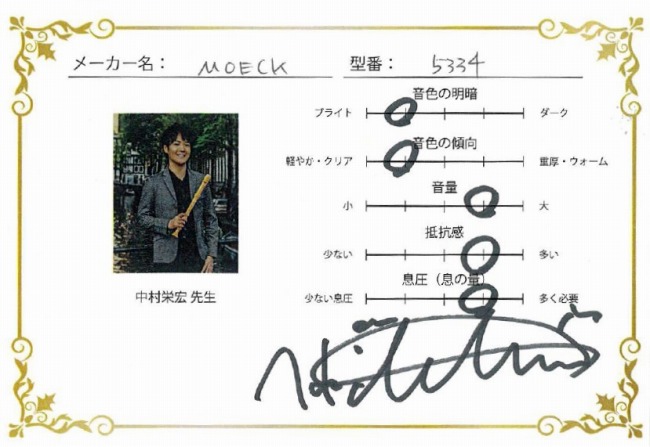 メーカー名： MOECK 型番： 5334
音色の明暗
ブライト ダーク
音色の傾向
軽やか・クリア 重厚・ウォーム
音量
小 大
抵抗感
少ない 多い
息圧（息の量）
少ない息圧 多く必要
中村栄宏 先生